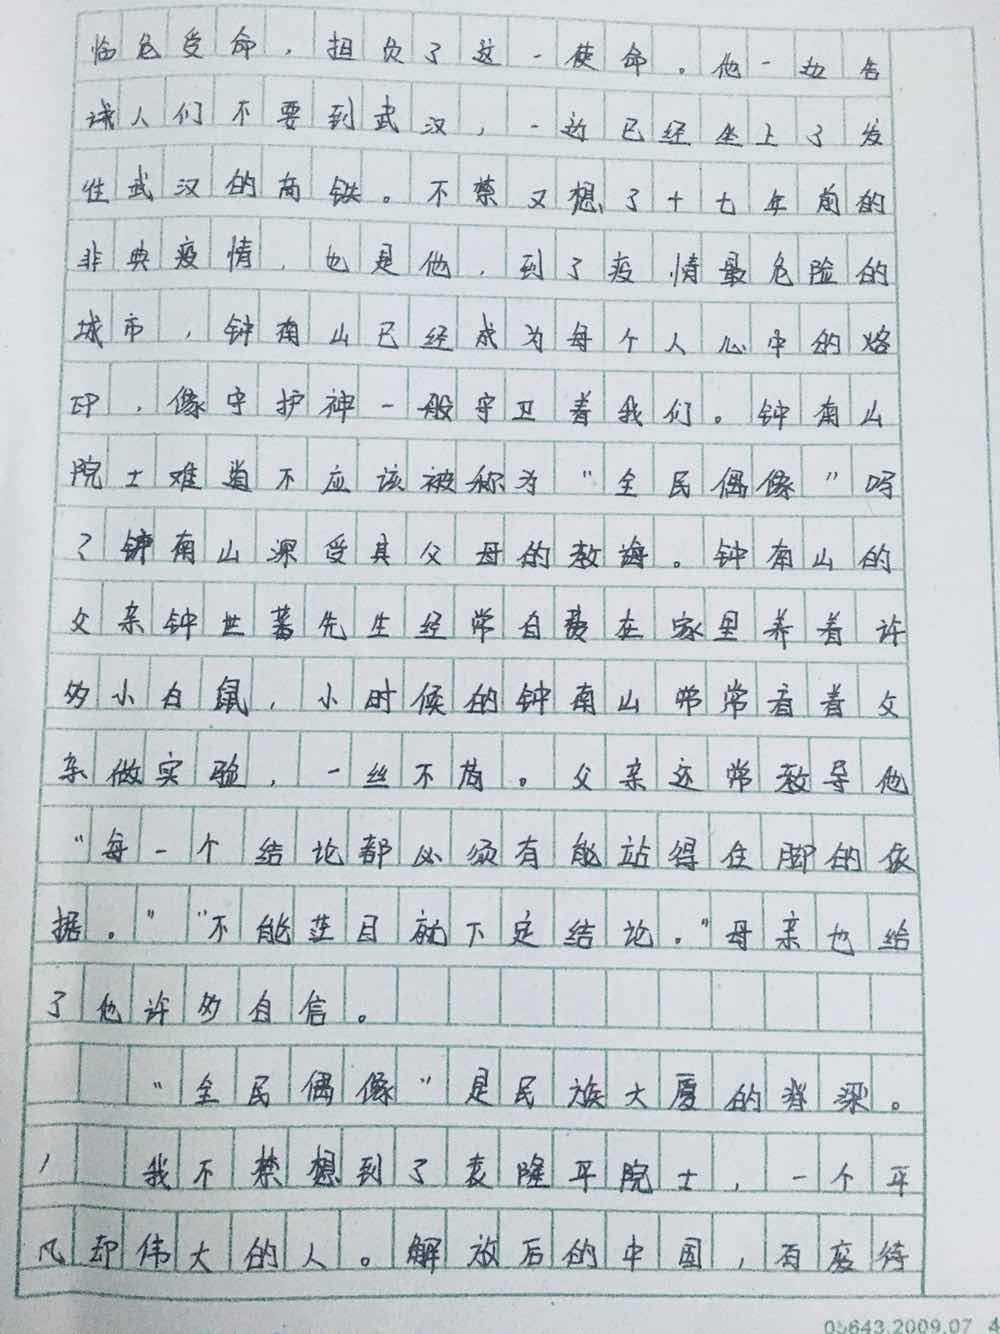 临危受命，担负了这一使命。他一边告
诫人们不要到武汉，一边已经坐上了发
往武汉的高铁。不禁又想了十七年前的
非典疫情，也是他，到了疫情最危险的
城市，钟南山已经成为每个人心中的烙
印，像守护神一般守卫着我们。钟南山
院士难道不应该被称为“全民偶像”吗
？钟南山深受其父母的教诲。钟南山的
父亲钟世蕃先生经常自费在家里养着许
多小白鼠，小时候的钟南山常常看着父
亲做实验，一丝不苟。父亲还常教导他
“每一个结论都必须有能站得住脚的依
据。”“不能茫目就下定结论。”母亲也给
了他许多自信。
“全民偶像”是民族大厦的脊梁。
我不禁想到了袁隆平院士，一个平
凡却伟大的人。解放后的中国，百废待
05643.2009.07